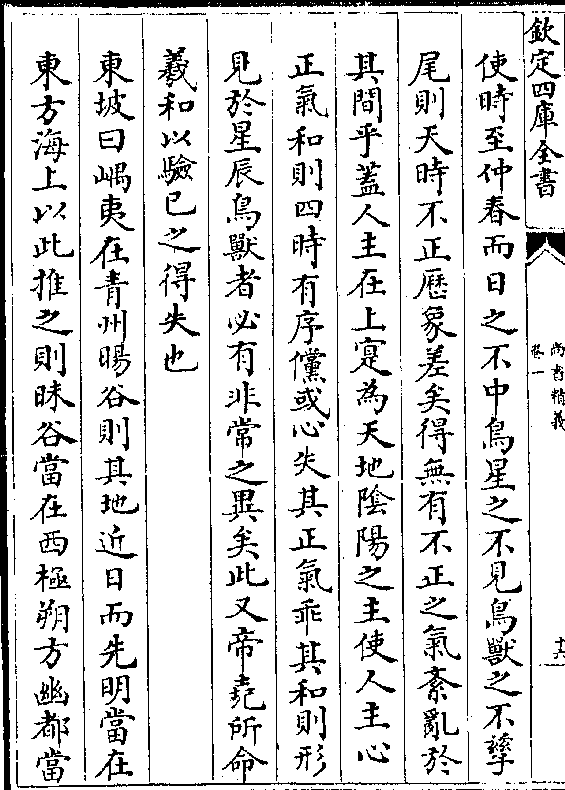 欽定四庫全書
尚書精義
卷一
十六
使時至仲春而日之不中鳥星之不見鳥獸之不孳
尾則天時不正歴象差矣得無有不正之氣紊亂於
其間乎蓋人主在上寔為天地陰陽之主使人主心
正氣和則四時有序儻或心失其正氣乖其和則形
見於星辰鳥獸者必有非常之異矣此又帝堯所命
羲和以驗已之得失也
東坡曰嵎夷在青州暘谷則其地近日而先明當在
東方海上以此推之則昧谷當在西極朔方幽都當